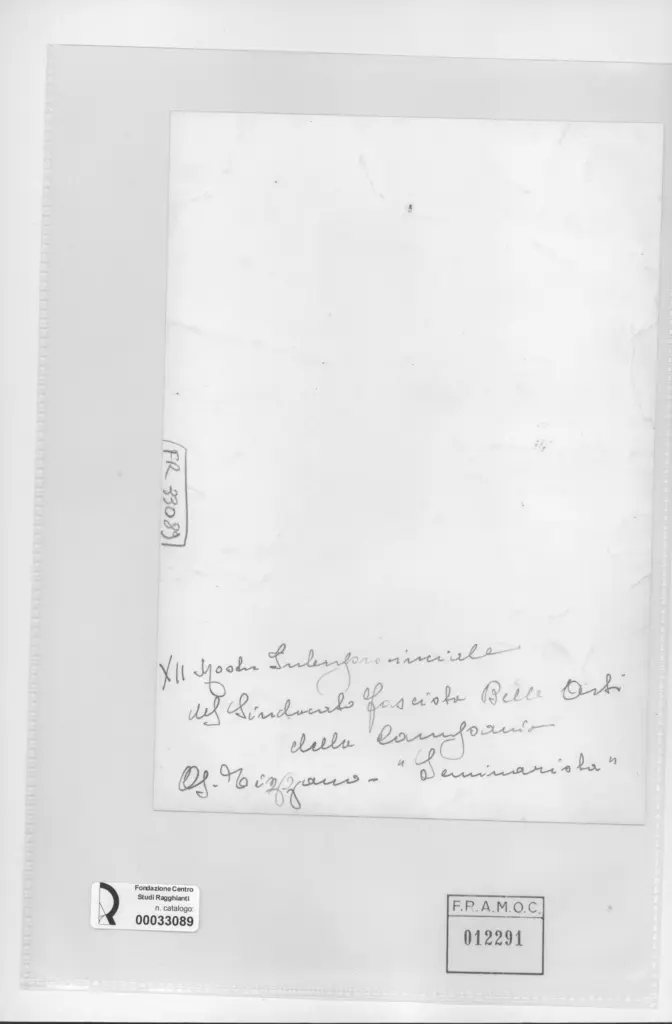 FR 33089
XII Mostra Interprovinciale
del Sindacato fascista Belle Arti
della Campania
Tizzano - "Seminarista"
Fondazione Centro
Studi Ragghianti
n. catalogo:
00033089
F.R.A.M.O.C.
012291